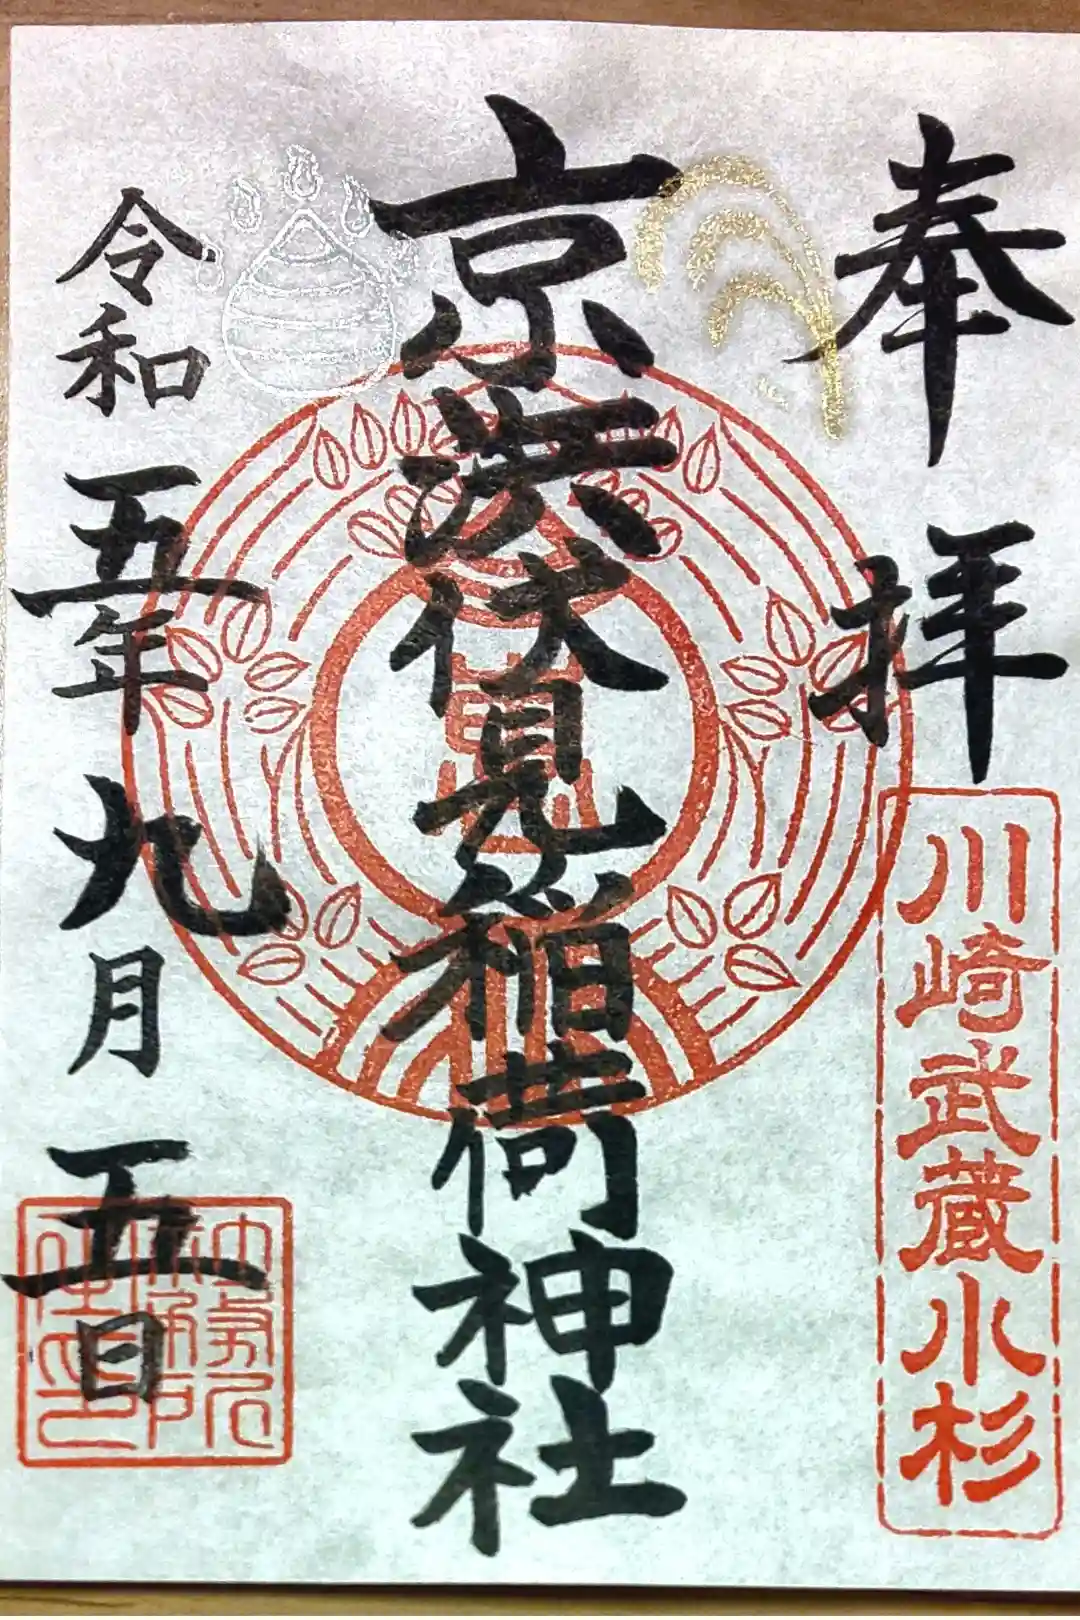 奉拝
川崎武蔵小杉
京濱伏見稲荷神社
令和五年九月五日